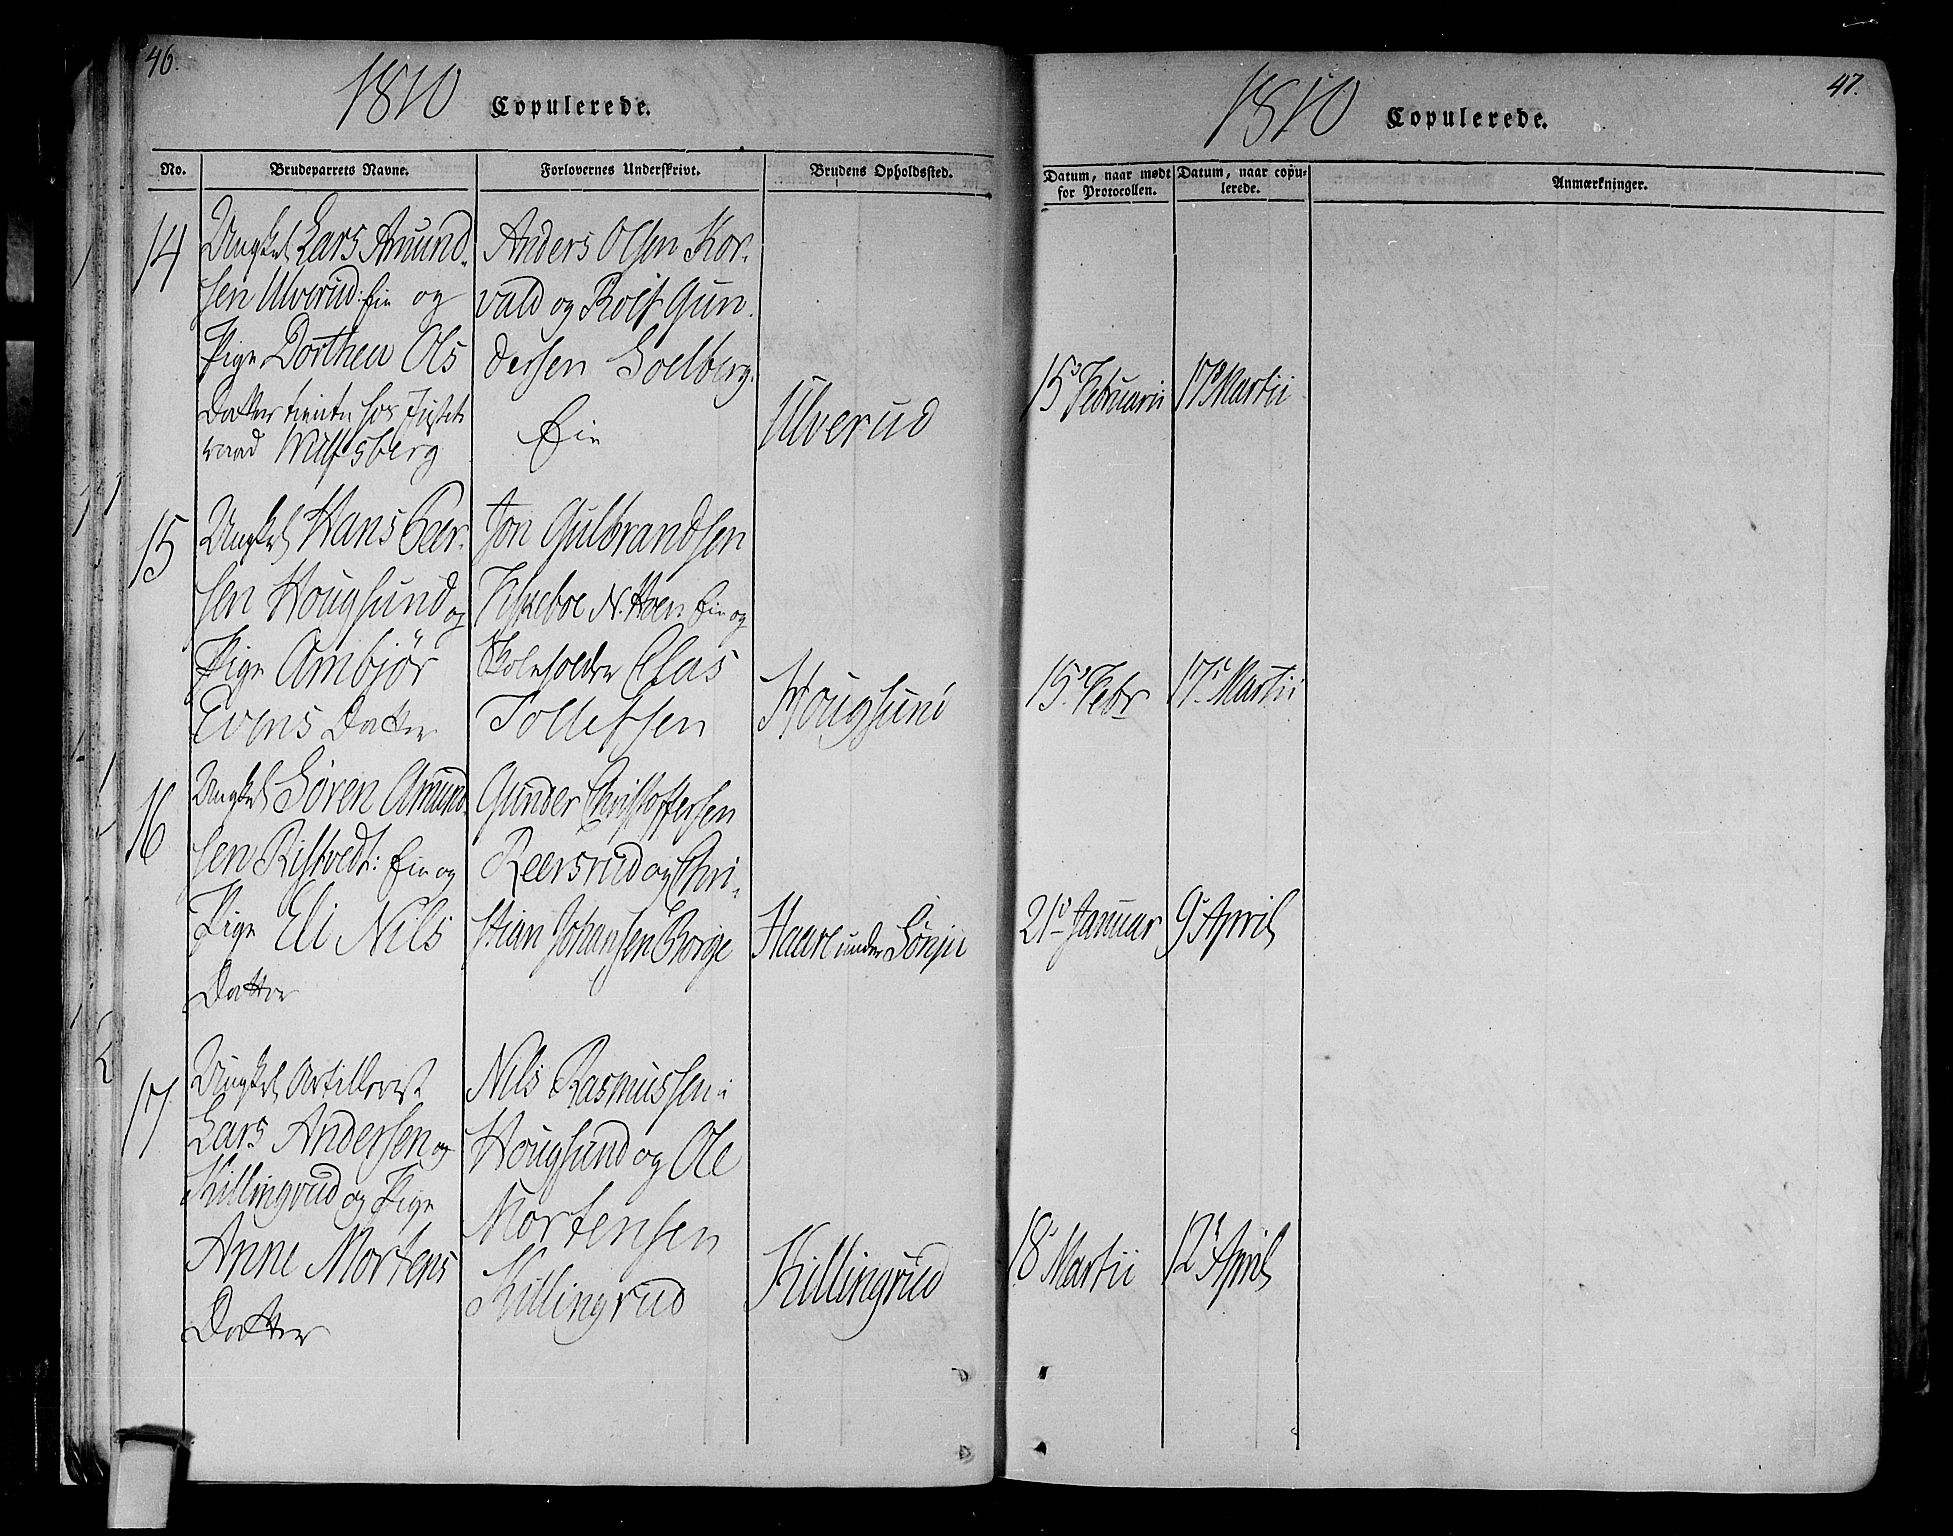 46.
1810 Copulerede.
No. Brudeparrets Navne. Forlovernes Underskrivt. Brudens Opholdssted.
14
Ungkel Lars Amund-
sen Ulverud: Eie og
Pige Dorthea Ols
Datter tiente hos Justits
raad
Anders Olsen Kor-
vald og Rolf Gun-
dersen Soelberg
Eie
Ulverud
15
Ungkel Hans Peer-
sen Hougsund og
Pige Ambjør
Evens Datter
Jon Gulbrandsen
N. Hoen Eie og
Skoleholder Clas
Tollefsen
Hougsund
16
Ungkel Sören Amund-
sen Ristvedt: Eie og
Pige Eli Nils
Datter
Gunder Christoffersen
Reersrud og Chri-
stian Johansen Borge
Haare under Sönju
17
Ungkel Artillerist
Lars Andersen og
Killingrud og Pige
Anne Mortens
Datter
Nils Rasmussen
Hougsund og Ole
Mortensen
Killingrud
Killingrud
47.
1810 Copulerede.
Datum, naar mødt Datum, naar copu- Anmærkninger.
for Protocollen. lerede.
15 Februarii 17 Martii
15 Febr 17 Martii
21 Januar 9 April
18 Martii 12 April